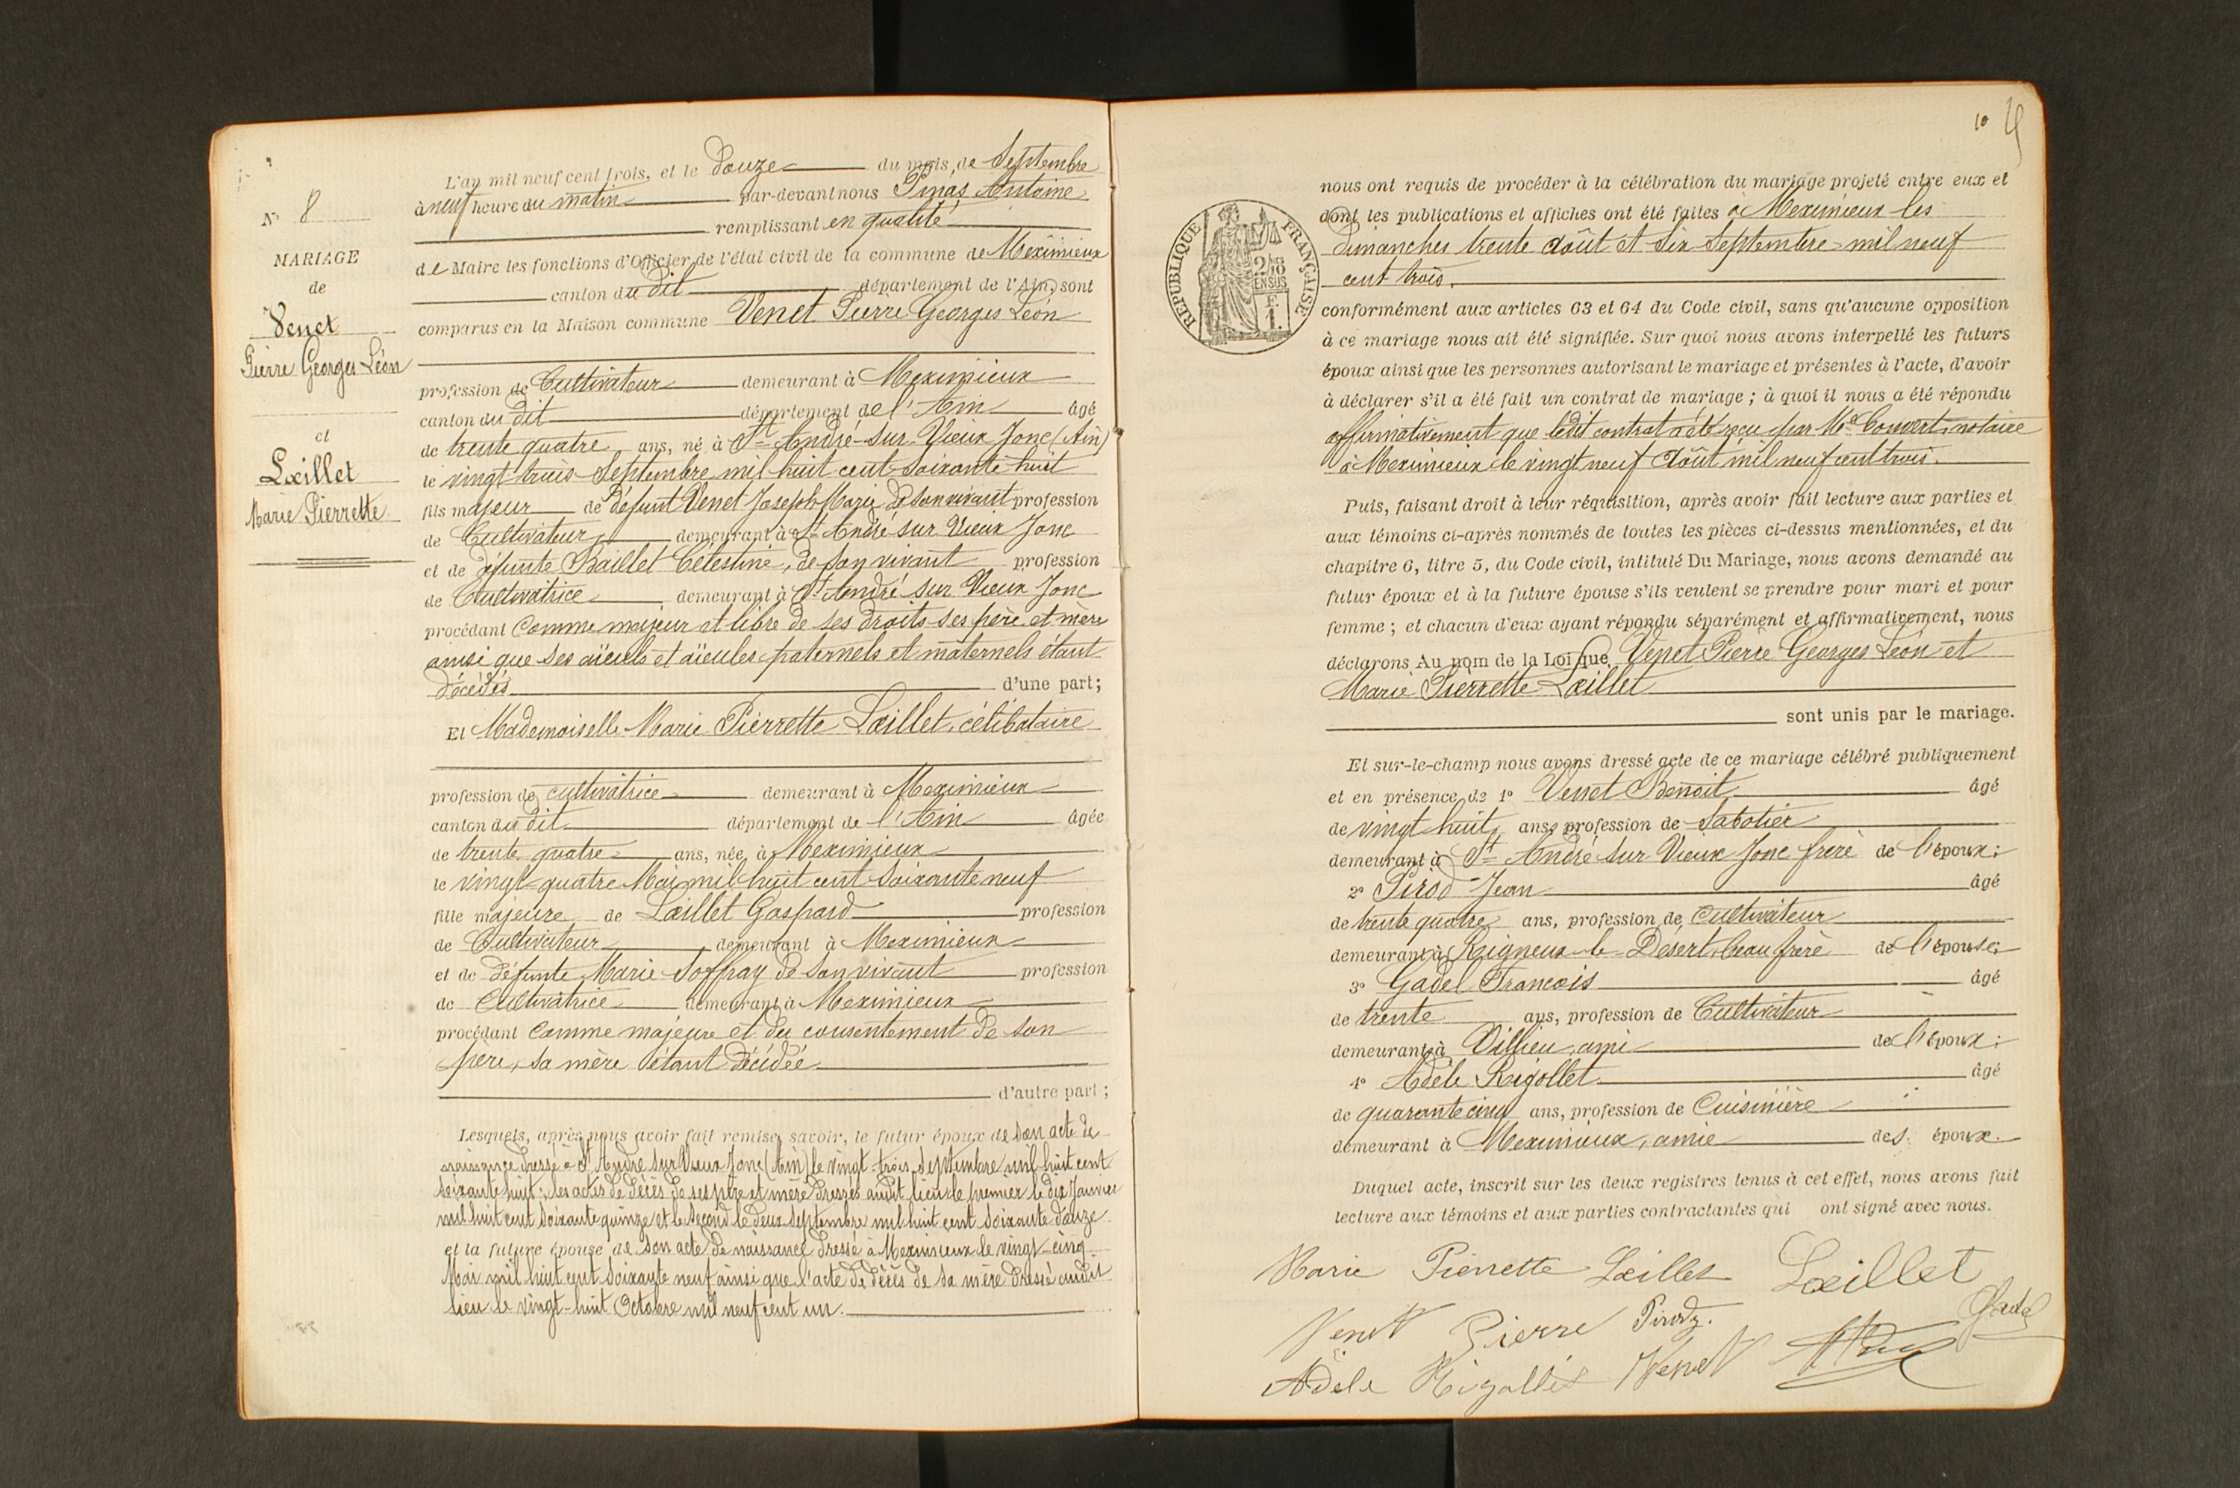 N° 8
MARIAGE
de
Venet
Pierre Georges Léon
et
Lœillet
Marie Pierrette
L'an mil neuf cent trois, et le douze du mois de Septembre
à neuf heure du matin par-devant nous Pinas Antoine
remplissant en qualité
de Maire les fonctions d'Officier de l'état civil de la commune de Meximieux
canton du dit département de l'Ain, sont
comparus en la Maison commune Venet Pierre Georges Léon
profession de Cultivateur demeurant à Meximieux
canton du dit département de l'Ain âgé
de trente quatre ans, né à St André-sur-Vieux Jonc (Ain)
le vingt trois Septembre mil huit cent soixante huit
fils majeur de défunt Venet Joseph Marie de son vivant profession
de Cultivateur demeurant à St André sur Vieux Jonc
et de défunte Baillet Célestine, de son vivant profession
de Cultivatrice demeurant à St André sur Vieux Jonc
procédant comme majeur et libre de ses droits ses père et mère
ainsi que ses aïeuls et aïeules paternels et maternels étant
décédés d'une part;
Et Mademoiselle Marie Pierrette Lœillet, célibataire
profession de cultivatrice demeurant à Meximieux
canton du dit département de l'Ain âgée
de trente quatre ans, née à Meximieux
le vingt-quatre Mai mil huit cent soixante neuf
fille majeure de Lœillet Gaspard profession
de Cultivateur demeurant à Meximieux
et de défunte Marie Joffray de son vivant profession
de Cultivatrice demeurant à Meximieux
procédant comme majeure et du consentement de son
père, sa mère étant décédée
d'autre part;
Lesquels, après nous avoir fait remise, savoir, le futur époux de son acte de
naissance dressé à St André sur Vieux Jonc (Ain) le vingt-trois Septembre mil huit cent
soixante huit; les actes de décès de ses père et mère dressés audit lieu le premier le dix Janvier
mil huit cent soixante quinze et le second le deux Septembre mil huit cent soixante douze
et la future épouse de son acte de naissance dressé à Meximieux le vingt-cinq
Mai mil huit cent soixante neuf ainsi que l'acte de décès de sa mère dressé audit
lieu le vingt-huit Octobre mil neuf cent un.
10
RÉPUBLIQUE FRANÇAISE
2/10
EN SUS
F.
1.
nous ont requis de procéder à la célébration du mariage projeté entre eux et
dont les publications et affiches ont été faites à Meximieux les
dimanches trente Août et six Septembre mil neuf
cent trois.
conformément aux articles 63 et 64 du Code civil, sans qu'aucune opposition
à ce mariage nous ait été signifiée. Sur quoi nous avons interpellé les futurs
époux ainsi que les personnes autorisant le mariage et présentes à l'acte, d'avoir
à déclarer s'il a été fait un contrat de mariage; à quoi il nous a été répondu
affirmativement que ledit contrat a été reçu par Me Convert, notaire
à Meximieux le vingt neuf Août mil neuf cent trois.
Puis, faisant droit à leur réquisition, après avoir fait lecture aux parties et
aux témoins ci-après nommés de toutes les pièces ci-dessus mentionnées, et du
chapitre 6, titre 5, du Code civil, intitulé Du Mariage, nous avons demandé au
futur époux et à la future épouse s'ils veulent se prendre pour mari et pour
femme; et chacun d'eux ayant répondu séparément et affirmativement, nous
déclarons Au nom de la Loi que Venet Pierre Georges Léon et
Marie Pierrette Lœillet
sont unis par le mariage.
Et sur-le-champ nous avons dressé acte de ce mariage célébré publiquement
et en présence de 1° Venet Benoit âgé
de vingt huit ans, profession de Sabotier
demeurant à St André sur Vieux Jonc frère de l'époux;
2° Pirod Jean âgé
de trente quatre ans, profession de Cultivateur
demeurant à Rigneux le Desert, beau frère de l'épouse;
3° Gadel François âgé
de trente ans, profession de Cultivateur
demeurant à Villieu, ami de l'époux;
4° Adèle Rigollet âgé
de quarante cinq ans, profession de Cuisinière
demeurant à Meximieux, amie des époux.
Duquel acte, inscrit sur les deux registres tenus à cet effet, nous avons fait
lecture aux témoins et aux parties contractantes qui ont signé avec nous.
Marie Pierrette Lœillet Lœillet
Venet Pierre Pirod. Gadel
Adèle Rigollet Venet